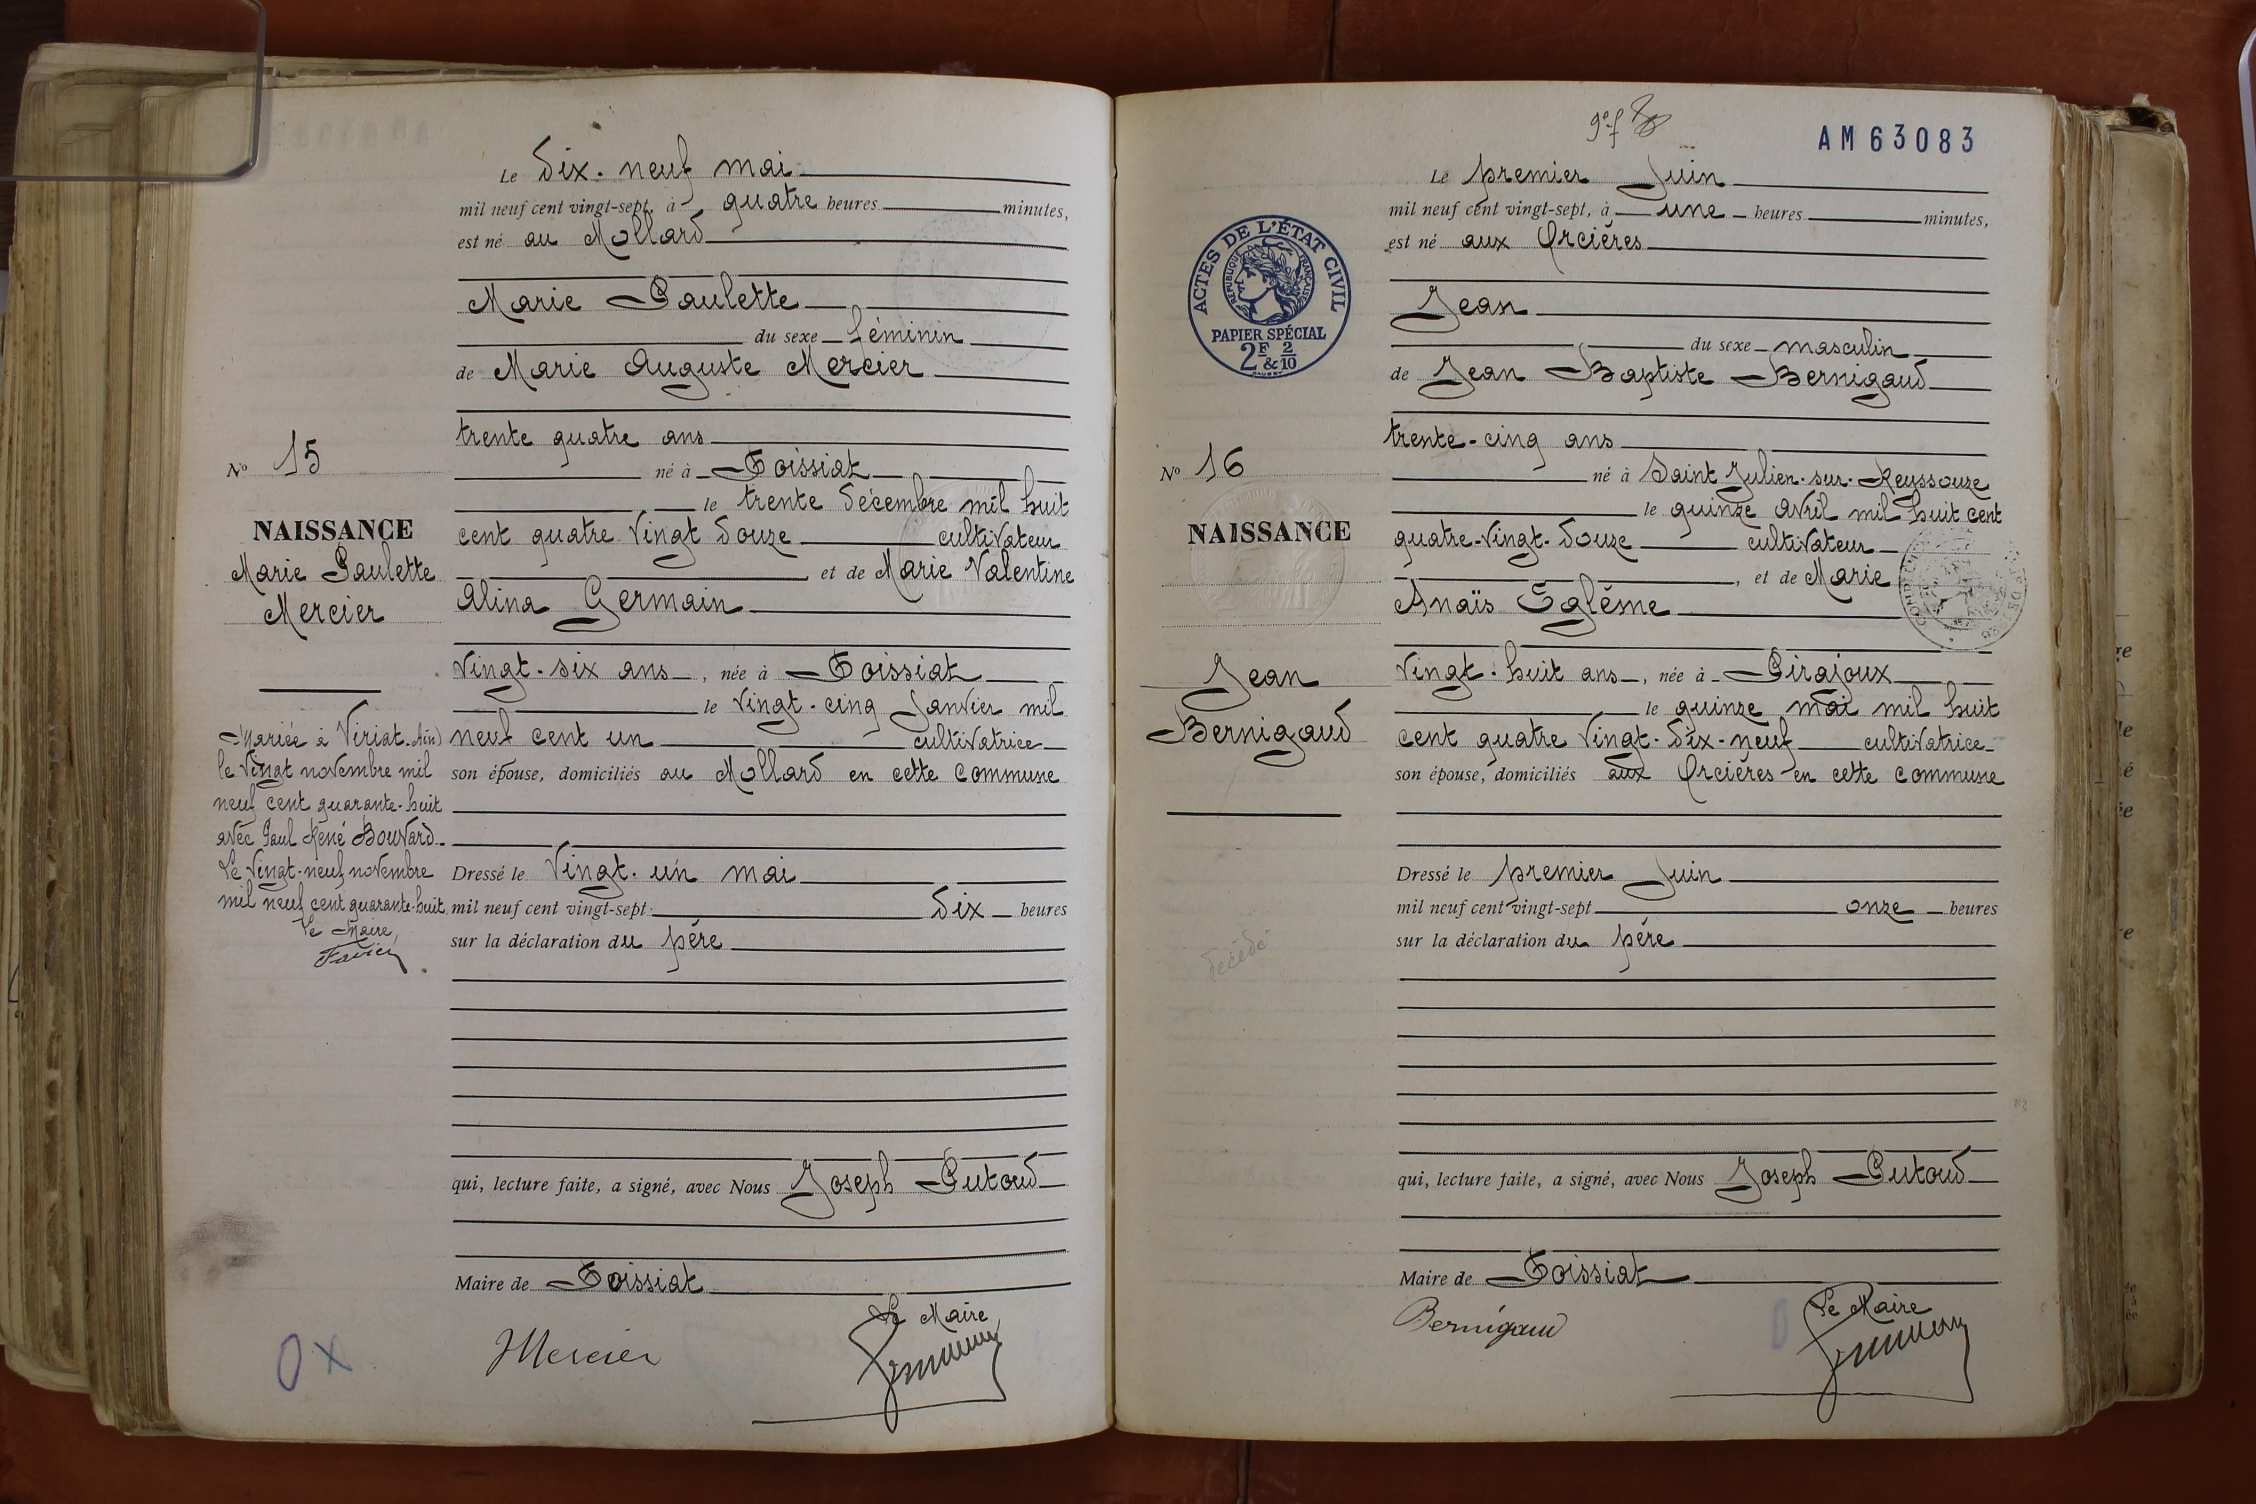 Le dix-neuf mai
mil neuf cent vingt-sept, à quatre heures minutes,
est né au Mollard
Marie Paulette
du sexe féminin
de Marie Auguste Mercier
trente quatre ans
né à Foissiat
le trente décembre mil huit
cent quatre vingt douze cultivateur
et de Marie Valentine
Alina Germain
vingt-six ans, née à Foissiat
le vingt-cinq Janvier mil
neuf cent un cultivatrice
son épouse, domiciliés au Mollard en cette commune
Dressé le vingt-un mai
mil neuf cent vingt-sept dix heures
sur la déclaration du père
qui, lecture faite, a signé, avec Nous Joseph Putoud
Maire de Foissiat
Le Maire
Mercier
N° 15
NAISSANCE
Marie Paulette
Mercier
Mariée à Viriat (Ain)
le vingt novembre mil
neuf cent quarante-huit
avec Paul René Bouvard.
Le vingt-neuf novembre
mil neuf cent quarante-huit
Le Maire,
OX
AM63083
Le premier Juin
mil neuf cent vingt-sept, à une heures minutes,
est né aux Orcières
Jean
du sexe masculin
de Jean Baptiste Bernigaud
trente-cinq ans
né à Saint Julien-sur-Reyssouze
le quinze avril mil huit cent
quatre-vingt-douze cultivateur
, et de Marie
Anaïs Eglème
vingt-huit ans, née à Pirajoux
le quinze mai mil huit
cent quatre vingt-dix-neuf cultivatrice
son épouse, domiciliés aux Orcières en cette commune
Dressé le premier Juin
mil neuf cent vingt-sept onze heures
sur la déclaration du père
qui, lecture faite, a signé, avec Nous Joseph Putoud
Maire de Foissiat
Le Maire
Bernigaud
ACTES DE L'ÉTAT CIVIL
REPUBLIQUE FRANÇAISE
PAPIER SPÉCIAL
2F & 2/10
N° 16
NAISSANCE
Jean
Bernigaud
décédé